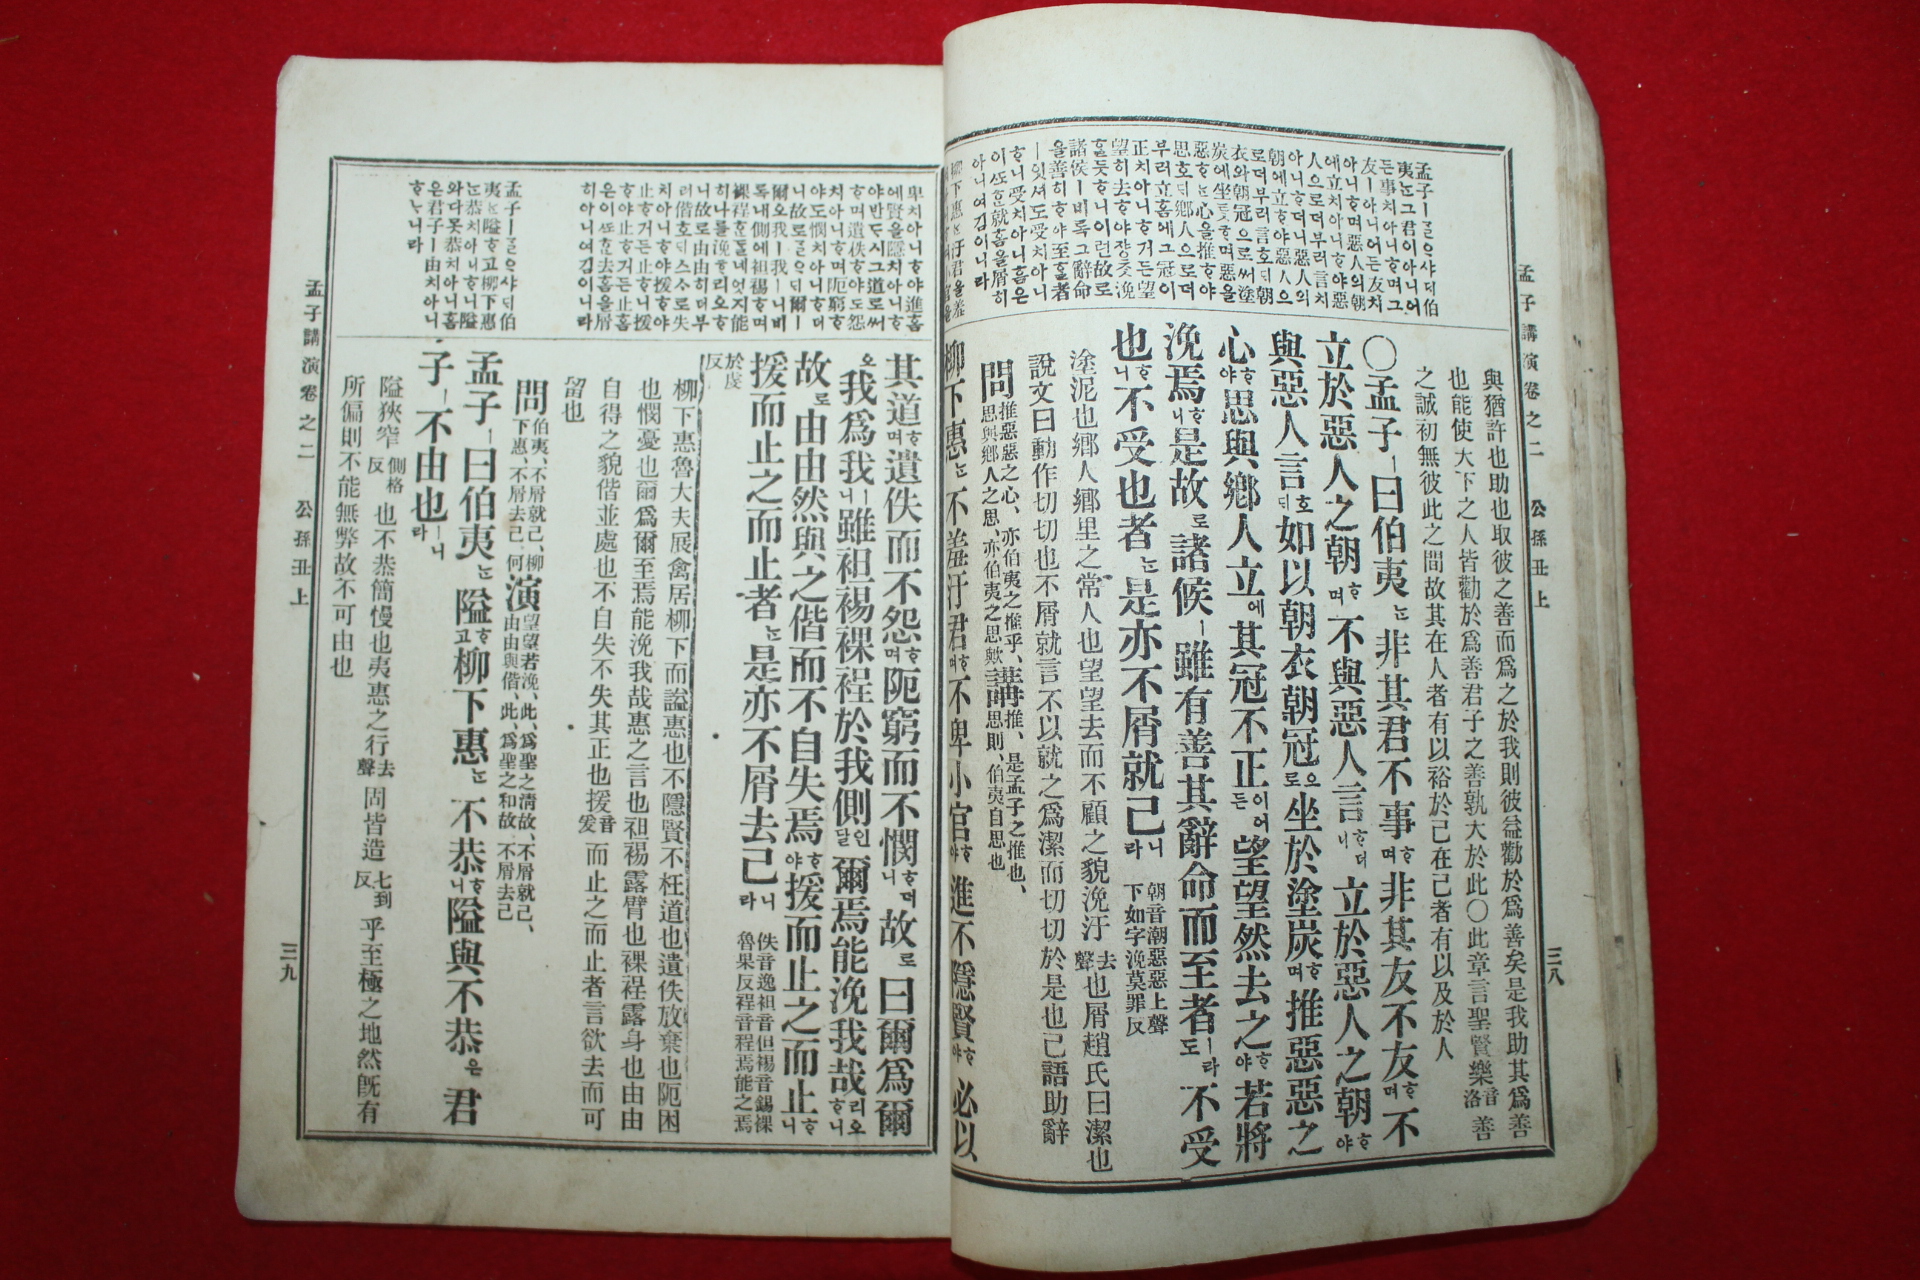 孟子講演 卷之二 公孫丑上 三八
孟子ㅣᄀᆞᆯᄋᆞ샤ᄃᆡ伯
夷ᄂᆞᆫ그君이아니어
든事치아니ᄒᆞ며그
友ㅣ아니어든友치
아니ᄒᆞ며惡人의朝
애立치아니ᄒᆞ야惡
人으로더부러言치
아니ᄒᆞ더니惡人의
朝애立ᄒᆞ야惡人으
로더부러言호ᄃᆡ朝
衣와朝冠으로써塗
炭에坐ᄐᆞᆺᄒᆞ며惡을
惡ᄒᆞᄂᆞᆫ心을推ᄒᆞ야
思호ᄃᆡ鄕人으로더
부러立홈애그冠이
正치아니ᄒᆞ거든望
望히去ᄒᆞ야쟝ᄎᆞᆺ浼
ᄒᆞᆯᄃᆞᆺᄒᆞ니이런故로
諸侯ㅣ비록그辭命
을善히ᄒᆞ야至ᄒᆞᆯ者
ㅣ잇셔도受치아니
ᄒᆞ니受치아니홈은
이ᄯᅩᄒᆞᆫ就홈을屑히
아니여김이니라
柳下惠ᄂᆞᆫ汙君을羞
與猶許也助也取彼之善而爲之於我則彼益勸於爲善矣是我助其爲善
也能使天下之人皆勸於爲善君子之善孰大於此〇此章言聖賢樂音洛善
之誠初無彼此之間故其在人者有以裕於己在己者有以及於人
〇孟子ㅣ曰伯夷ᄂᆞᆫ非其君不事ᄒᆞ며非其友不友ᄒᆞ며不
立於惡人之朝ᄒᆞ며不與惡人言ᄒᆞ더니立於惡人之朝ᄒᆞ야
與惡人言호ᄃᆡ如以朝衣朝冠으로坐於塗炭ᄒᆞ며推惡惡之
心ᄒᆞ야思與鄕人立에其冠不正이어든望望然去之ᄒᆞ야若將
浼焉ᄒᆞ니是故로諸侯ㅣ雖有善其辭命而至者ㅣ라도不受
也ᄒᆞ니不受也者ᄂᆞᆫ是亦不屑就己니라 朝音潮惡惡上聲下如字浼莫罪反
塗泥也鄕人鄕里之常人也望望去而不顧之貌浼汙去聲也屑趙氏曰潔也
說文曰動作切切也不屑就言不以就之爲潔而切切於是也己語助辭
問推惡惡之心、亦伯夷之惟乎、思與鄕人之思、亦伯夷之思歟 講推、是孟子之推也、思則、伯夷自思也
柳下惠ᄂᆞᆫ不羞汙君ᄒᆞ며不卑小官ᄒᆞ야進不隱賢ᄒᆞ야必以
卑치아니ᄒᆞ야進홈
에賢을隱치아니ᄒᆞ
야반ᄃᆞ시그道로써
ᄒᆞ며遺佚ᄒᆞ야도怨
치아니ᄒᆞ며阨窮ᄒᆞ
야도憫치아니ᄒᆞ더
니故로ᄀᆞᆯᄋᆞᄃᆡ爾ㅣ
爾오我ㅣ我ㅣ니비
록내側에袒裼ᄒᆞ며
裸裎ᄒᆞᆫᄃᆞᆯ네엇지能
히나를浼ᄒᆞ리오ᄒᆞ
니故로由由히더부
러偕호ᄃᆡ스스로失
치아니ᄒᆞ야援ᄒᆞ야
止ᄒᆞ거든止ᄒᆞ니援
ᄒᆞ야止ᄒᆞ거든止홈
은이ᄯᅩᄒᆞᆫ去홈을屑
히아니여김이니라
孟子ㅣᄀᆞᆯᄋᆞ샤ᄃᆡ伯
夷ᄂᆞᆫ隘ᄒᆞ고柳下惠
ᄂᆞᆫ恭치아니ᄒᆞ니隘
와다못恭치아니홈
은君子ㅣ由치아니
ᄒᆞᄂᆞ니라
其道ᄒᆞ며遺佚而不怨ᄒᆞ며阨窮而不憫ᄒᆞ더니故로曰爾爲爾
오我爲我ㅣ니雖袒裼裸裎於我側인ᄃᆞᆯ爾焉能浼我哉리오ᄒᆞ니
故로由由然與之偕而不自失焉ᄒᆞ야援而止之而止ᄒᆞ니
援而止之而止者ᄂᆞᆫ是亦不屑去己니라 佚音逸袒音但裼音錫裸魯果反裎音程焉能之焉
於虔反
柳下惠魯大夫展禽居柳下而諡惠也不隱賢不枉道也遺佚放棄也阨困
也憫憂也爾爲爾至焉能浼我哉惠之言也袒裼露臂也裸裎露身也由由
自得之貌偕並處也不自失不失其正也援音爰而止之而止者言欲去而可
留也
問伯夷、不屑就己、柳下惠、不屑去己、何 演望望若浼、此、爲聖之淸故、不屑就己、由由與偕、此、爲聖之和故、不屑去己
孟子ㅣ曰伯夷ᄂᆞᆫ隘ᄒᆞ고柳下惠ᄂᆞᆫ不恭ᄒᆞ니隘與不恭은君
子ㅣ不由也ㅣ니라
隘狹窄側格反也不恭簡慢也夷惠之行去聲固皆造七到反乎至極之地然旣有
所偏則不能無弊故不可由也
孟子講演 卷之二 公孫丑上 三九